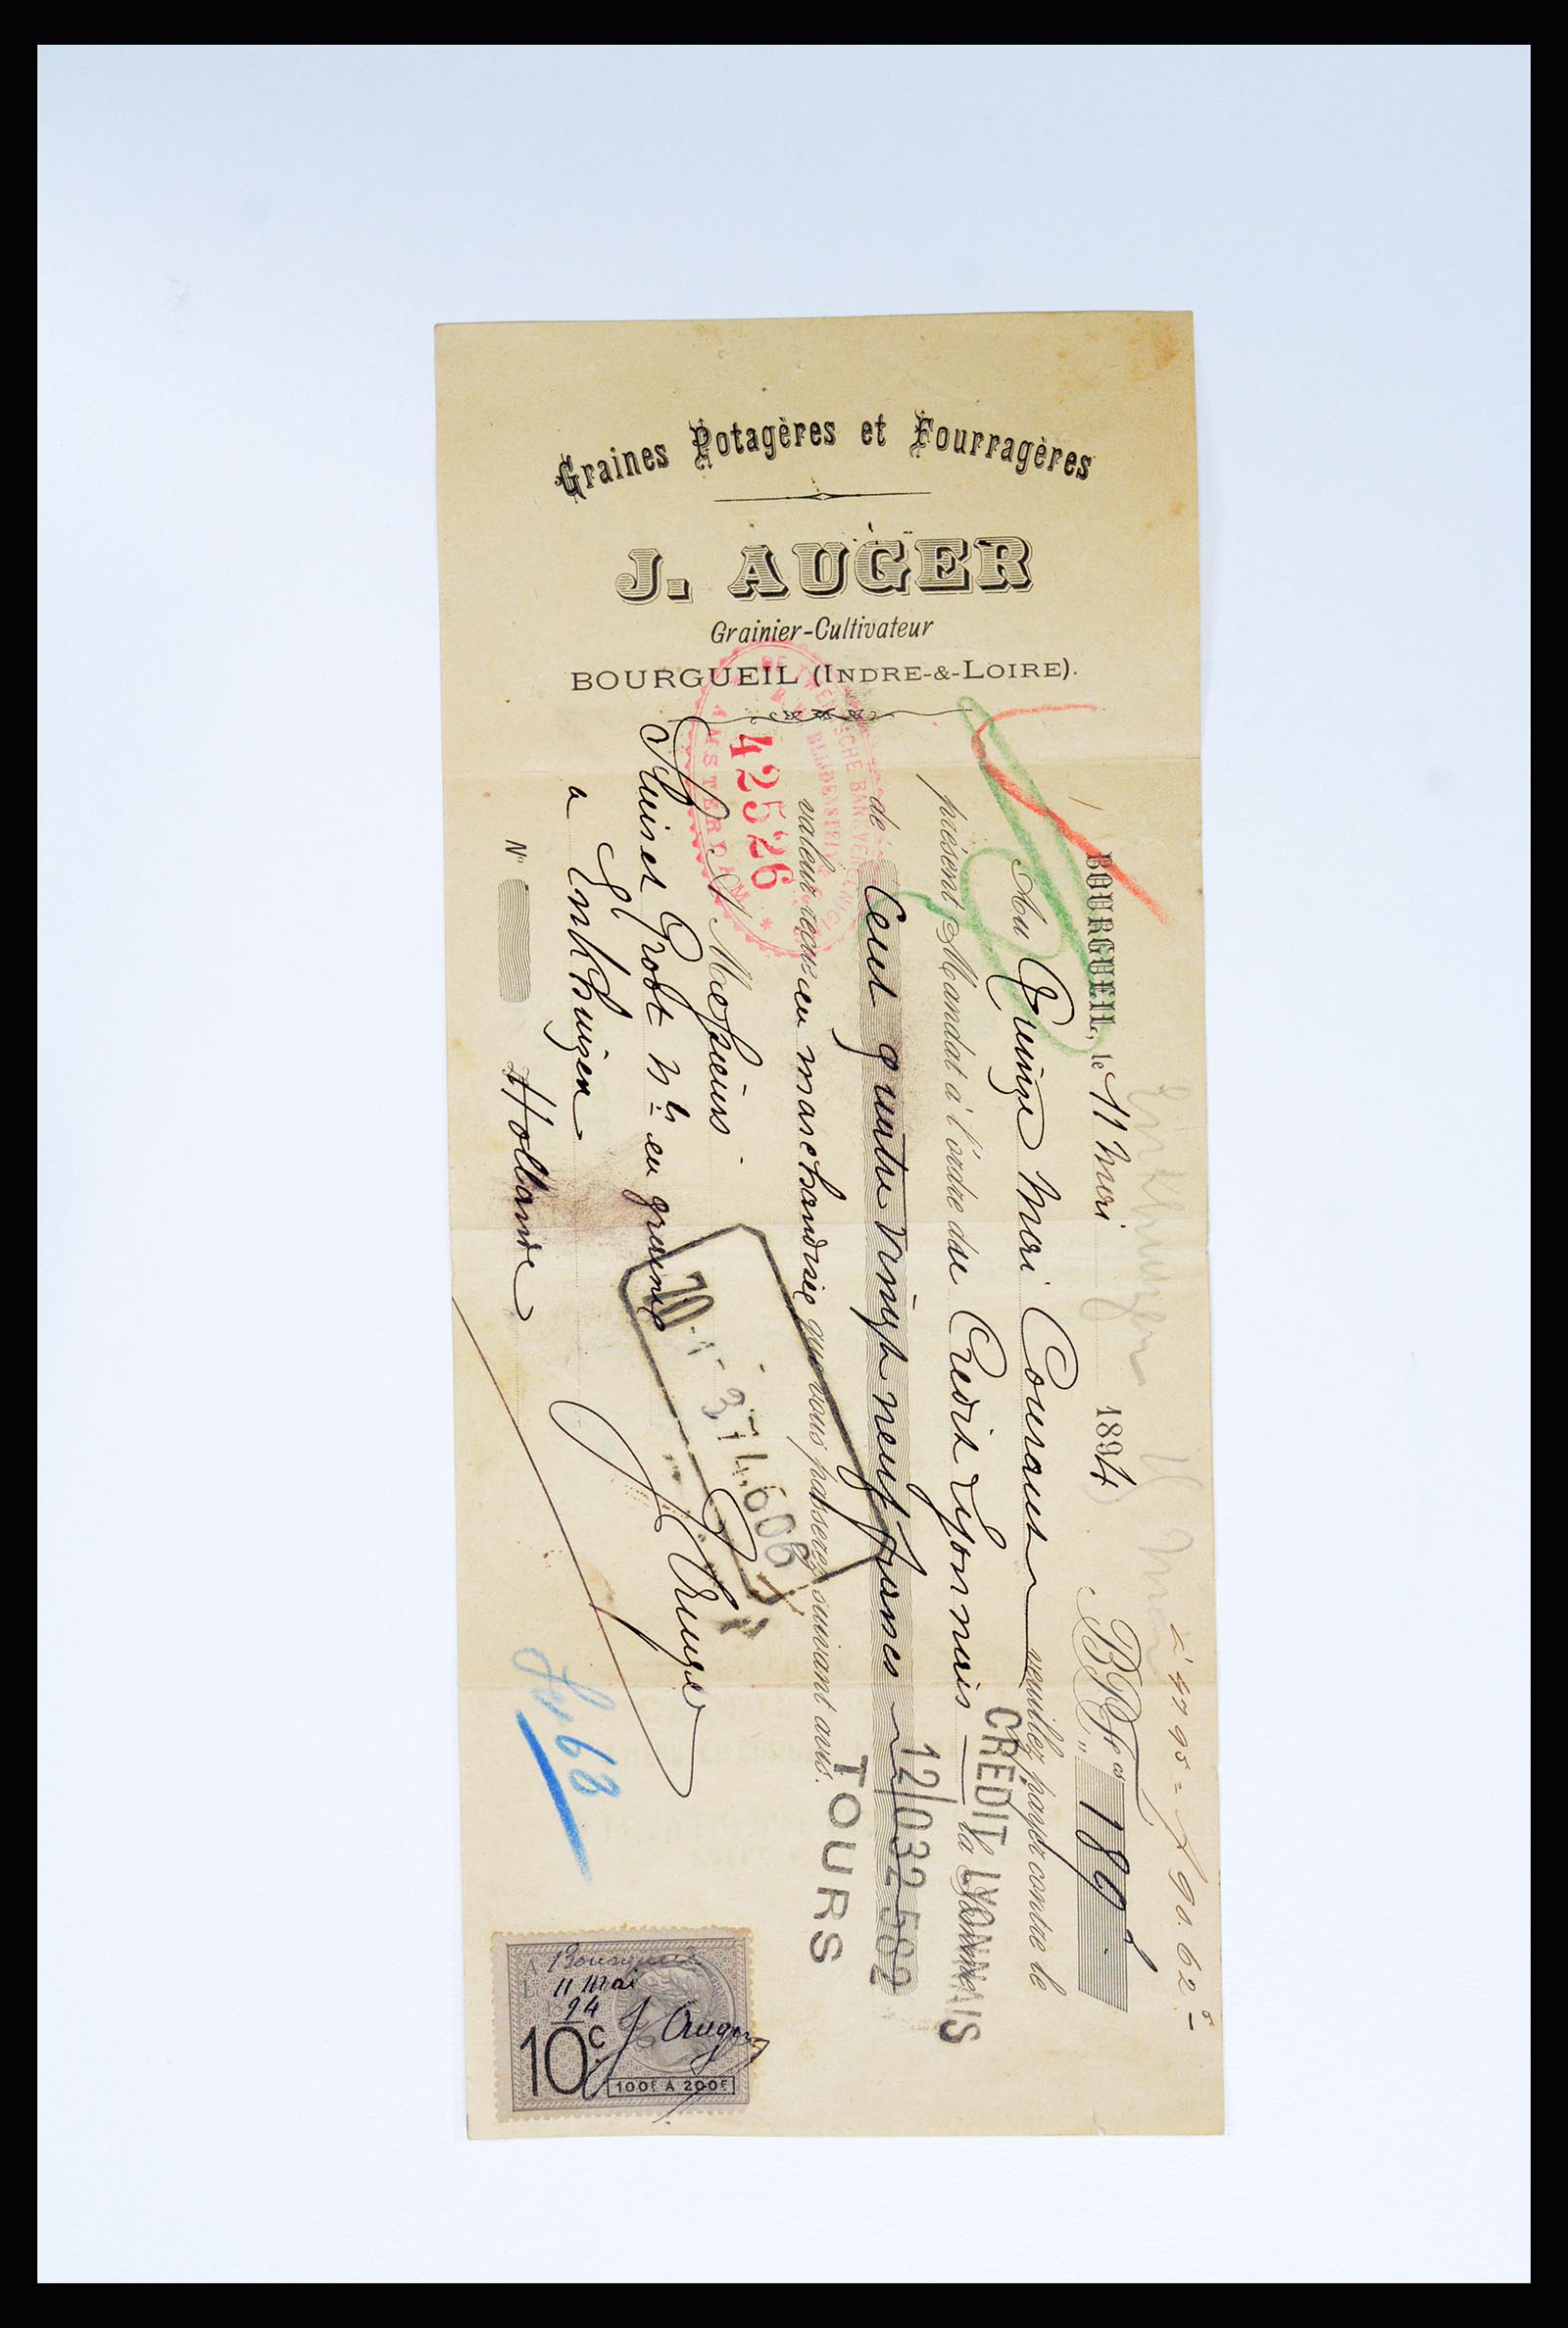 Graines Potagères et Fourragères
J. AUGER
Grainier-Cultivateur
BOURGUEIL (INDRE-&-LOIRE).
à 47 95 = f 90.62⁵
Enkhuizen
BOURGUEIL, le 11 Mai 1894 B.P.Fcs 189f
Au Quinze Mai Courant veuillez payer contre le
présent Mandat à l'ordre du Crédit Lyonnais la somme
de Cent quatre vingt neuf francs
valeur reçue en marchandise que vous passerez suivant avis.
A Messieurs
Sluis et Groot Nts en graines
a Enkhuizen
Nº Hollande
J Auger
CRÉDIT LYONNAIS
12/032 582
TOURS
42526
AMSTERDAM
374.606
A Bourgueil
11 Mai
94
J Auger
10c
100F A 200F